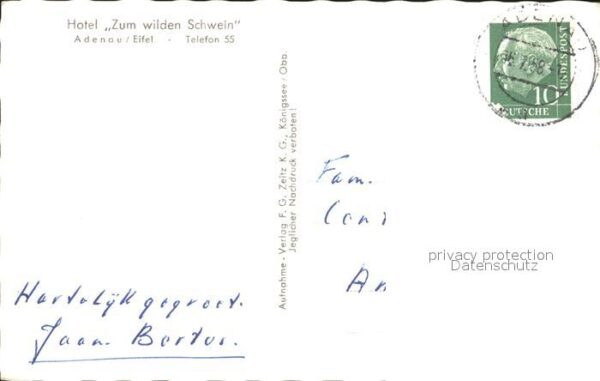 Hotel „Zum wilden Schwein"
Adenau/Eifel. - Telefon 55
ADENAU
BUNDESPOST
10
DEUTSCHE
Aufnahme - Verlag F. G. Zeitz K. G., Königssee/Obb.
Jeglicher Nachdruck verboten!
Fam.
An
privacy protection
Datenschutz
Hartelijk gegroet.
Jaan. Bertus.